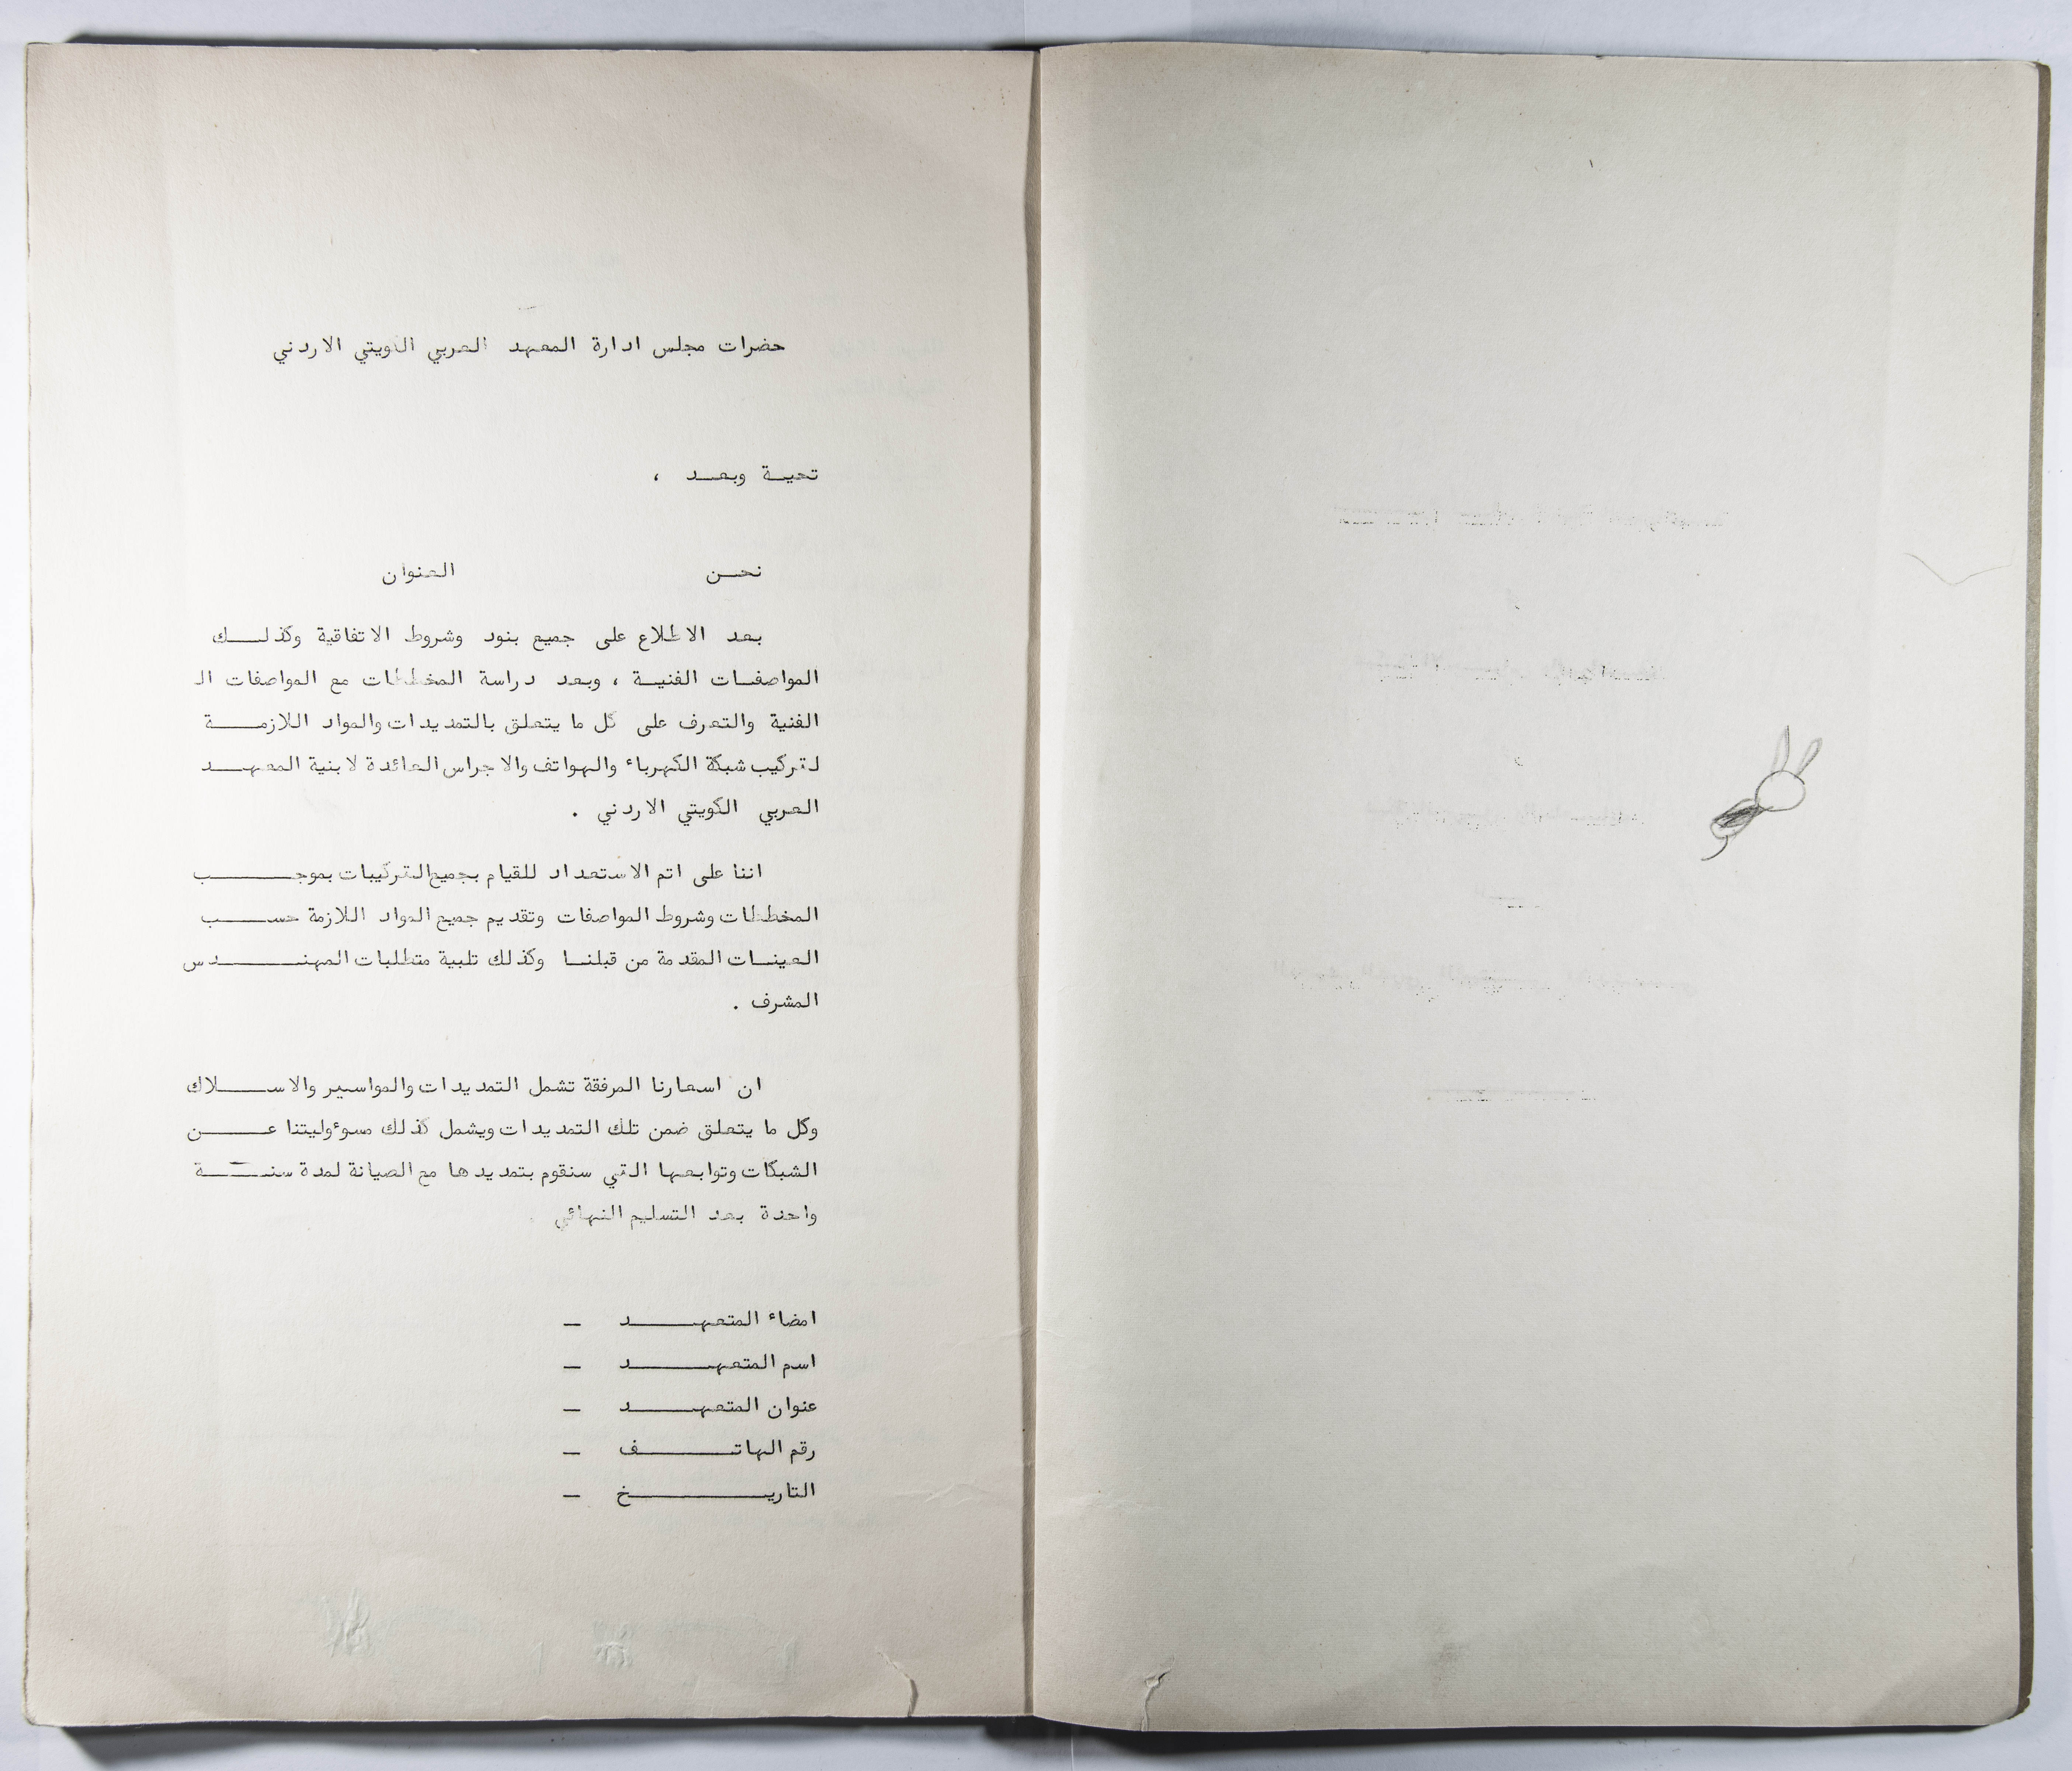 حضرات مجلس ادارة المعهد العربي الكويتي الاردني
تحية وبعد ،
نحن العنوان
بعد الاطلاع على جميع بنود وشروط الاتفاقية وكذلك
المواصفات الفنية ، وبعد دراسة المخططات مع المواصفات الـ
الفنية والتعرف على كل ما يتعلق بالتمديدات والمواد اللازمة
لتركيب شبكة الكهرباء والهواتف والاجراس العائدة لابنية المعهد
العربي الكويتي الاردني .
اننا على اتم الاستعداد للقيام بجميع التركيبات بموجب
المخططات وشروط المواصفات وتقديم جميع المواد اللازمة حسب
العينات المقدمة من قبلنا وكذلك تلبية متطلبات المهندس
المشرف .
ان اسعارنا المرفقة تشمل التمديدات والمواسير والاسلاك
وكل ما يتعلق ضمن تلك التمديدات ويشمل كذلك مسوءوليتنا عن
الشبكات وتوابعها التي سنقوم بتمديدها مع الصيانة لمدة سنة
واحدة بعد التسليم النهائي .
امضاء المتعهد –
اسم المتعهد –
عنوان المتعهد –
رقم الهاتف –
التاريخ –